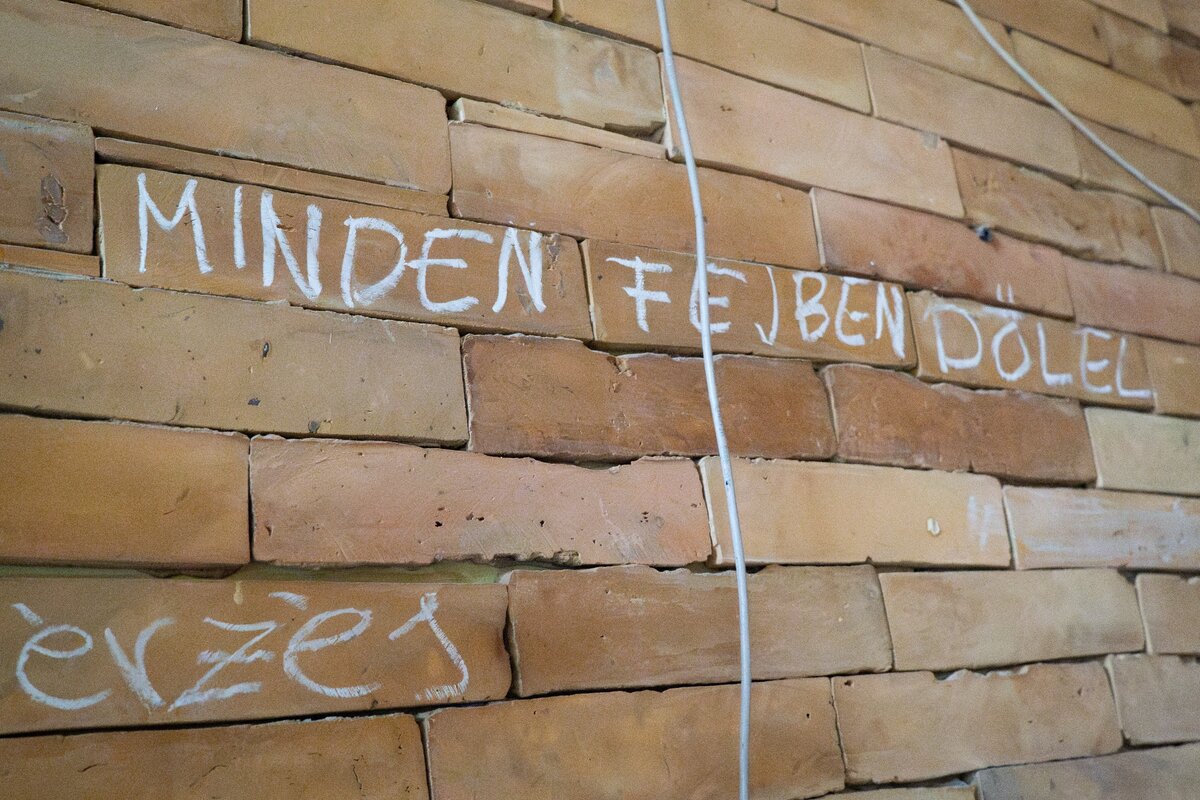 MINDEN FEJBEN DŐLEL
èrzès